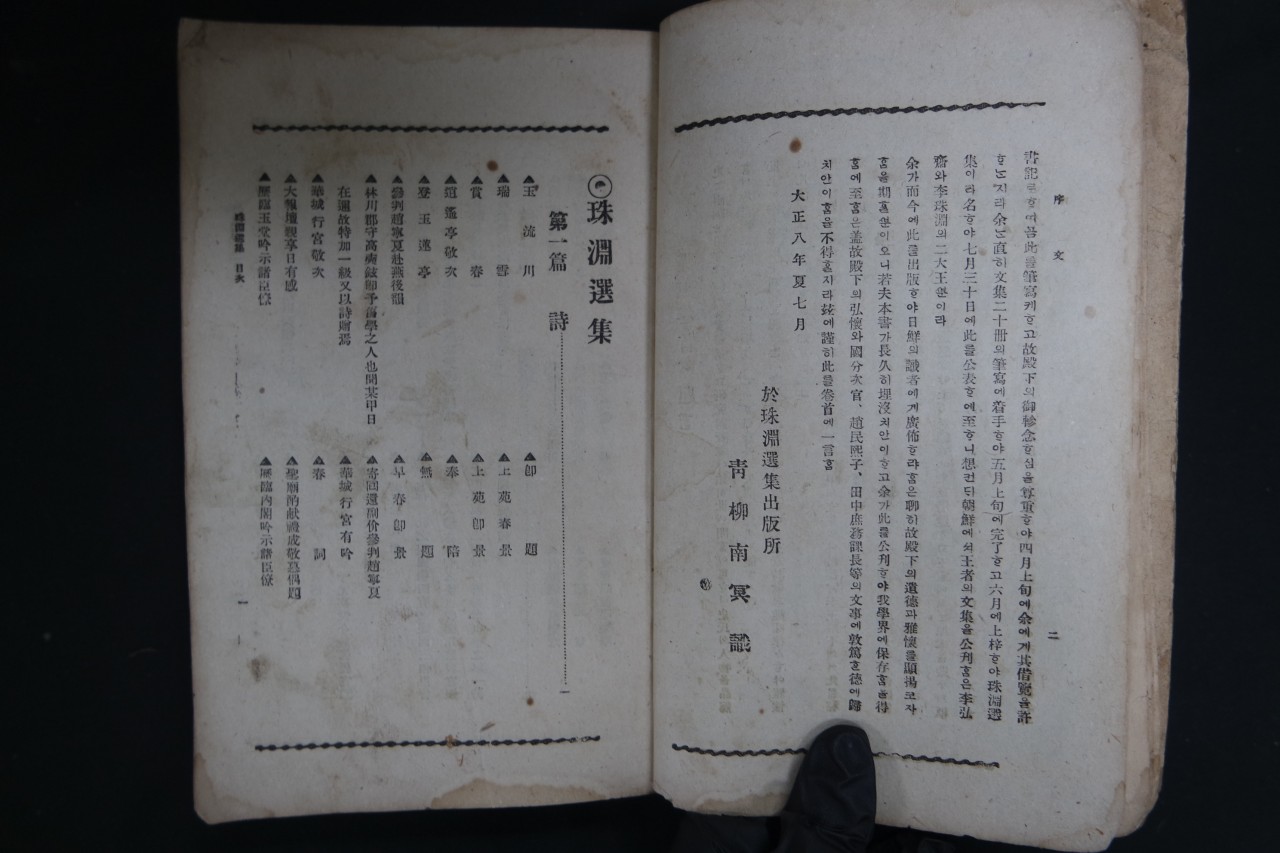 序文
二
書記로ᄒᆞ여곰此를筆寫케ᄒᆞ고故殿下의御軫念ᄒᆞ심을尊重ᄒᆞ야四月上旬에余에게其借覽을許
ᄒᆞᄂᆞᆫ지라余ᄂᆞᆫ直히文集二十冊의筆寫에着手ᄒᆞ야五月上旬에完了ᄒᆞ고六月에上梓ᄒᆞ야珠淵選
集이라名ᄒᆞ야七月三十日에此를公表ᄒᆞ에至ᄒᆞ니想컨ᄃᆡ朝鮮에셔王者의文集을公刊홈은李弘
齋와李珠淵의二大王ᄲᅮᆫ이라
余가而今에此를出版ᄒᆞ야日鮮의識者에게廣佈ᄒᆞ랴홈은聊히故殿下의遺德과雅懷를顯揚코자
홈을期홀ᄲᅮᆫ이오니若夫本書가長久히埋沒치안이ᄒᆞ고余가此를公刊ᄒᆞ야我學界에保存홈을得
홈에至홈은盖故殿下의弘懷와國分次官、趙民熙子、田中庶務課長等의文事에敦篤ᄒᆞᆫ德에歸
치안이홈을不得홀지라玆에謹히此를卷首에一言홈
大正八年夏七月
於珠淵選集出版所
靑柳南冥識
珠淵選集
第一篇 詩
一
▲玉流川
▲卽題
▲瑞雪
▲上苑春景
▲賞春
▲上苑卽景
▲逍遙亭敬次
▲奉陪
▲登玉遂亭
▲無題
▲參判趙寧夏赴燕後韻
▲早春卽景
▲林川郡守高奭鉉卽予舊學之人也聞某甲日
在邇故特加一級又以詩賜焉
▲寄回還副价參判趙寧夏
▲華城行宮有吟
▲華城行宮敬次
▲春詞
▲大報壇親享日有感
▲聖廟酌献禮成敬慕偶題
▲歷臨玉堂吟示諸臣僚
▲歷臨內閣吟示諸臣僚
珠淵選集 目次
一